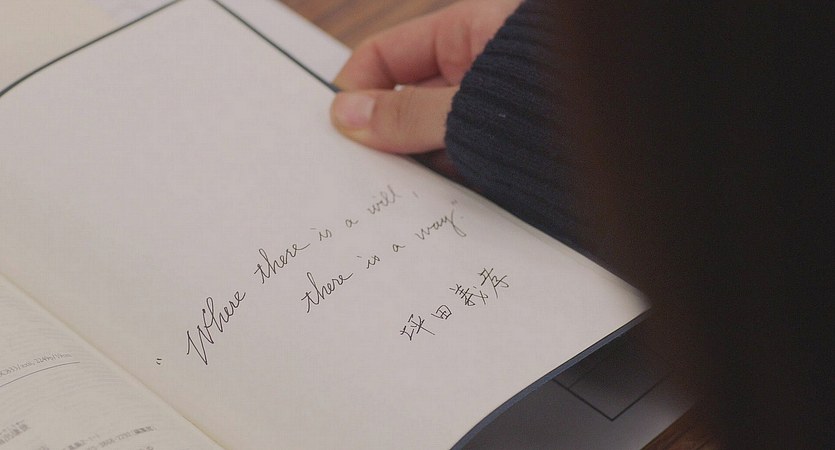 "Where there is a will,
there is a way."
坪田義孝